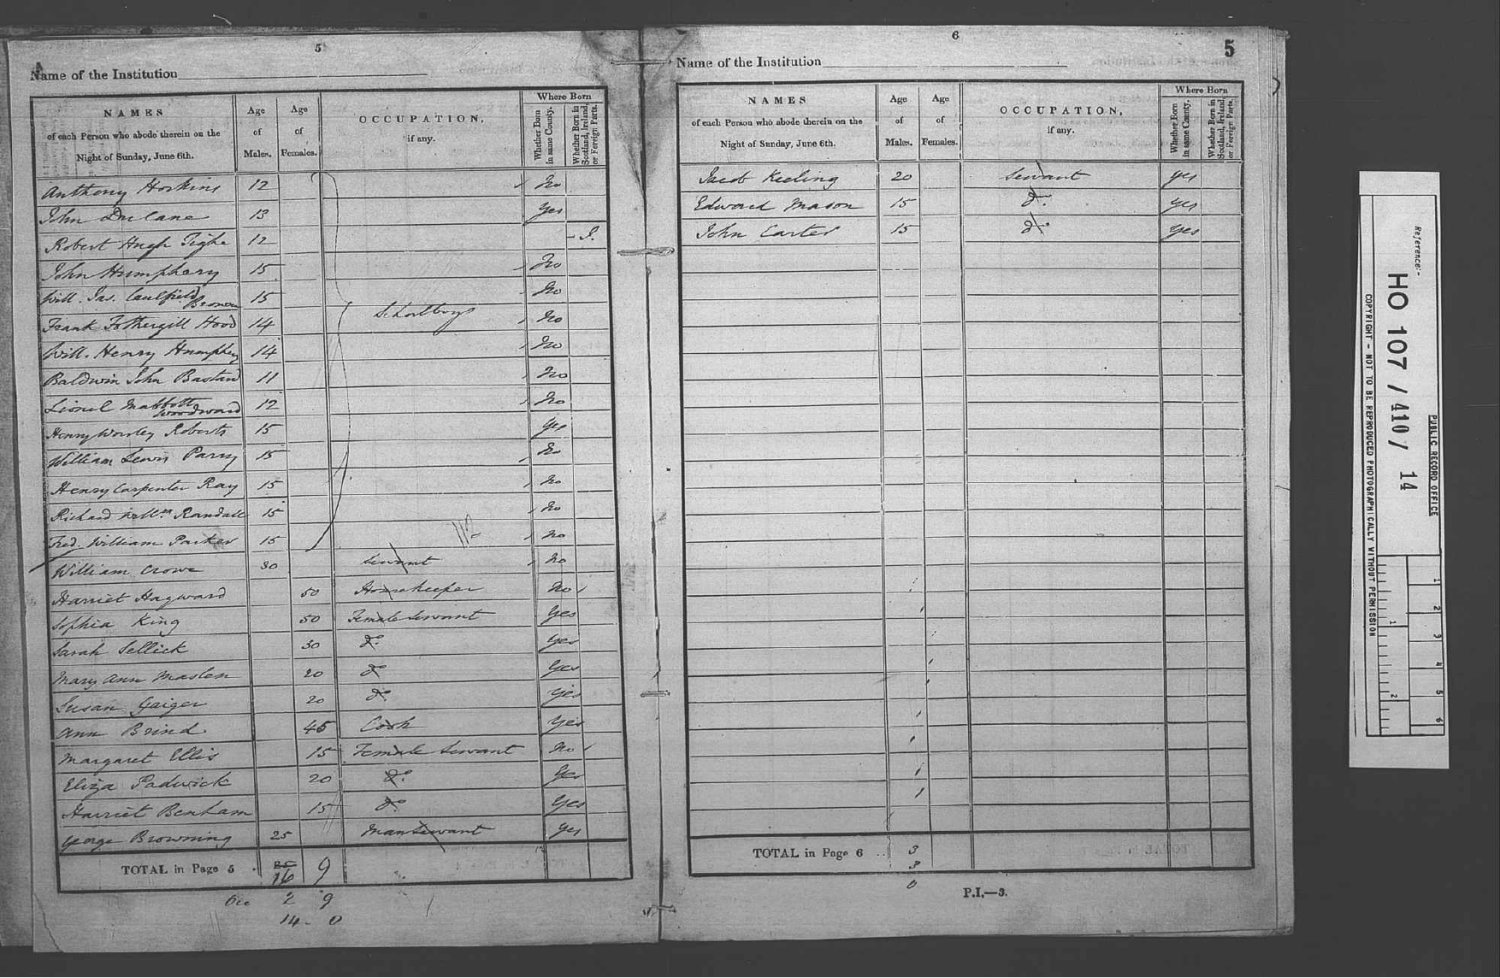 5
Name of the Institution
NAMES of each Person who abode therein on the Night of Sunday, June 6th. Age of Males. Age of Females. OCCUPATION, if any. Where Born Whether Born in same County. Whether Born in Scotland, Ireland, or Foreign Parts.
Anthony Hoskins 12 No
John Dulane 13 Yes
Robert Hugh Tighe 12 I.
John Humphery 15 No
Will. Jas. Caulfield Browne 15 No
Frank Fothergill Hood 14 Schoolboys No
Will. Henry Humphery 14 No
Baldwin John Bastard 11 No
Lionel Mabbott Woodward 12 No
Henry Worsley Roberts 15 Yes
William Lewis Parry 15 No
Henry Carpenter Ray 15 No
Richard Willm Randall 15 No
Fred. William Parker 15 No
William Crowe 30 Servant No
Harriet Hayward 50 Housekeeper No
Sophia King 50 Female Servant Yes
Sarah Sellick 30 do. Yes
Mary Ann Maslen 20 do Yes
Susan Gaiger 20 do. Yes
Ann Brind 45 Cook Yes
Margaret Ellis 15 Female Servant No
Eliza Padwick 20 do. Yes
Harriet Benham 15 do Yes
George Browning 25 Man Servant Yes
TOTAL in Page 5 16 9
Occ 2 9
14 - 0
6
5
Name of the Institution
NAMES of each Person who abode therein on the Night of Sunday, June 6th. Age of Males. Age of Females. OCCUPATION, if any. Where Born Whether Born in same County. Whether Born in Scotland, Ireland, or Foreign Parts.
Jacob Keeling 20 Servant Yes
Edward Mason 15 do. Yes
John Carter 15 do. Yes
TOTAL in Page 6 .. 3
3
0
P.I.—3.
Reference:-
HO 107 / 410 / 14
PUBLIC RECORD OFFICE
COPYRIGHT - NOT TO BE REPRODUCED PHOTOGRAPHICALLY WITHOUT PERMISSION
1 2 3 4 5 6
1 2